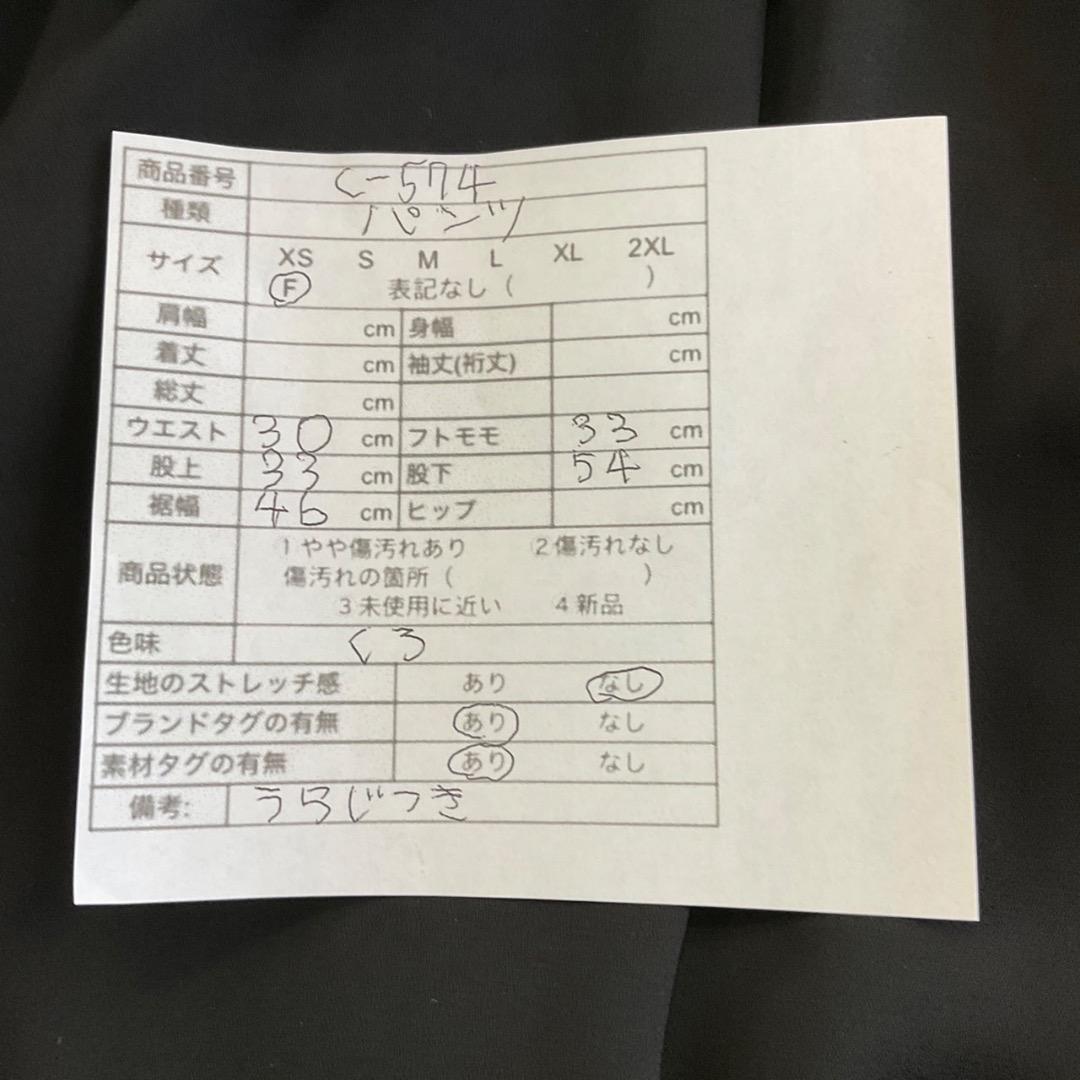 商品番号 C-574
種類 パンツ
サイズ XS S M L XL 2XL
F 表記なし ( )
肩幅 cm 身幅 cm
着丈 cm 袖丈(裄丈) cm
総丈 cm
ウエスト 30 cm フトモモ 33 cm
股上 33 cm 股下 54 cm
裾幅 46 cm ヒップ cm
商品状態 1 やや傷汚れあり 2 傷汚れなし
傷汚れの箇所 ( )
3 未使用に近い 4 新品
色味 くろ
生地のストレッチ感 あり なし
ブランドタグの有無 あり なし
素材タグの有無 あり なし
備考: うらじつき